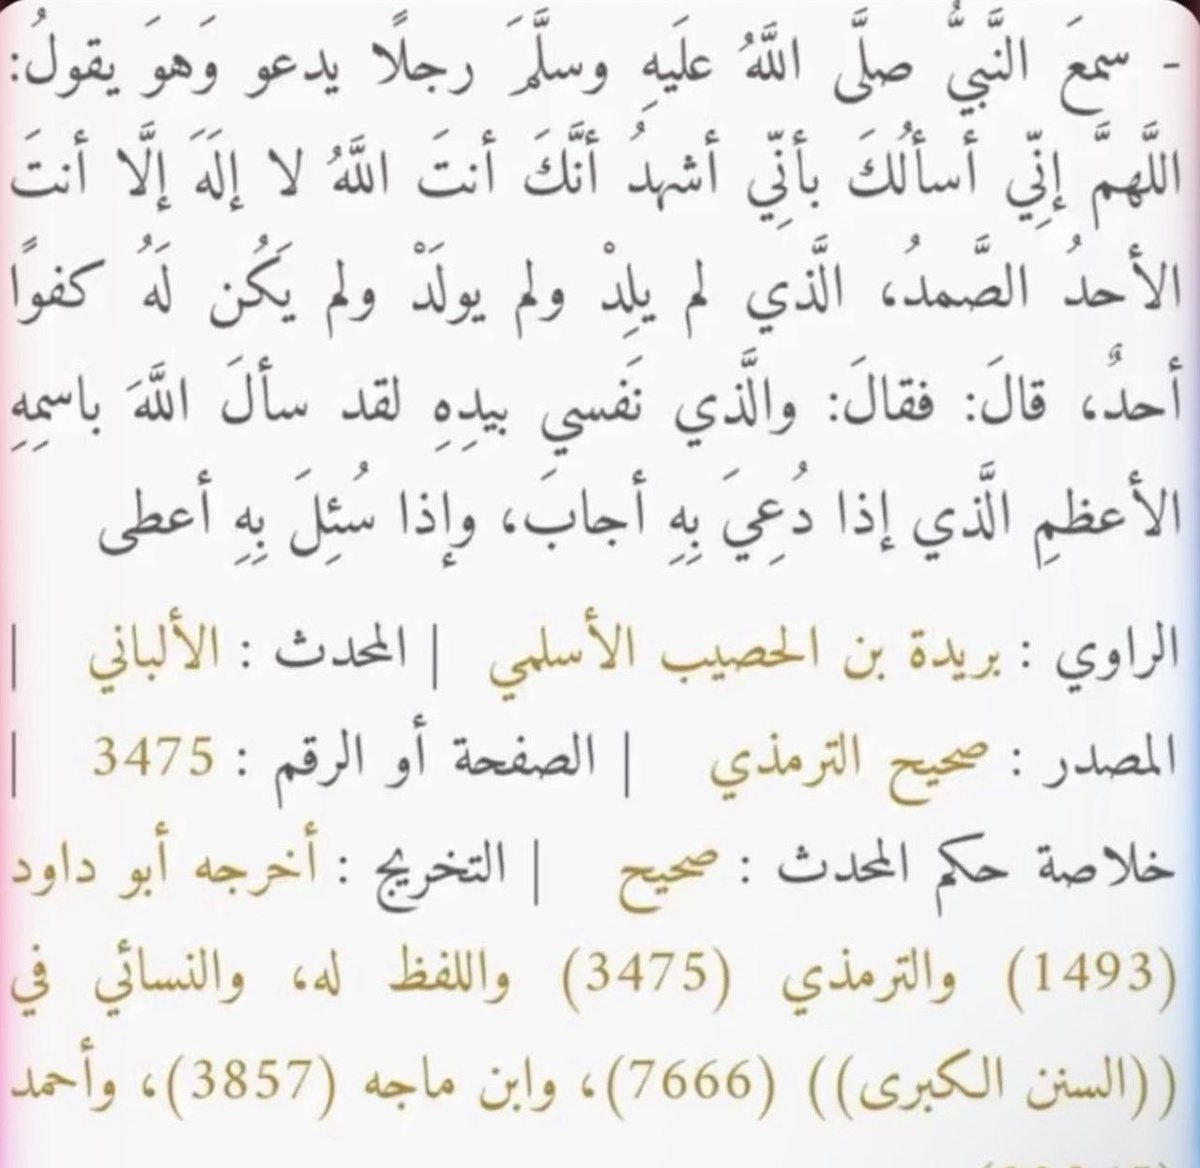 - سمعَ النَّبيُّ صلَّى اللَّهُ عليهِ وسلَّمَ رجلًا يدعو وَهوَ يقولُ:
اللَّهمَّ إنِّي أسألُكَ بأنِّي أشهدُ أنَّكَ أنتَ اللَّهُ لا إلَهَ إلَّا أنتَ
الأحدُ الصَّمدُ، الَّذي لم يلِدْ ولم يولَدْ ولم يَكُن لَهُ كفوًا
أحدٌ، قالَ: فقالَ: والَّذي نَفسي بيدِهِ لقد سألَ اللَّهَ باسمِهِ
الأعظمِ الَّذي إذا دُعِيَ بِهِ أجابَ، وإذا سُئِلَ بِهِ أعطى
الراوي : بريدة بن الحصيب الأسلمي | المحدث : الألباني |
المصدر : صحيح الترمذي | الصفحة أو الرقم : 3475 |
خلاصة حكم المحدث : صحيح | التخريج : أخرجه أبو داود
(1493) والترمذي (3475) واللفظ له، والنسائي في
((السنن الكبرى)) (7666)، وابن ماجه (3857)، وأحمد